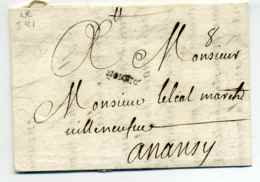 8
A Monsieur
Monsieur leleal march
villeneufue
anansy